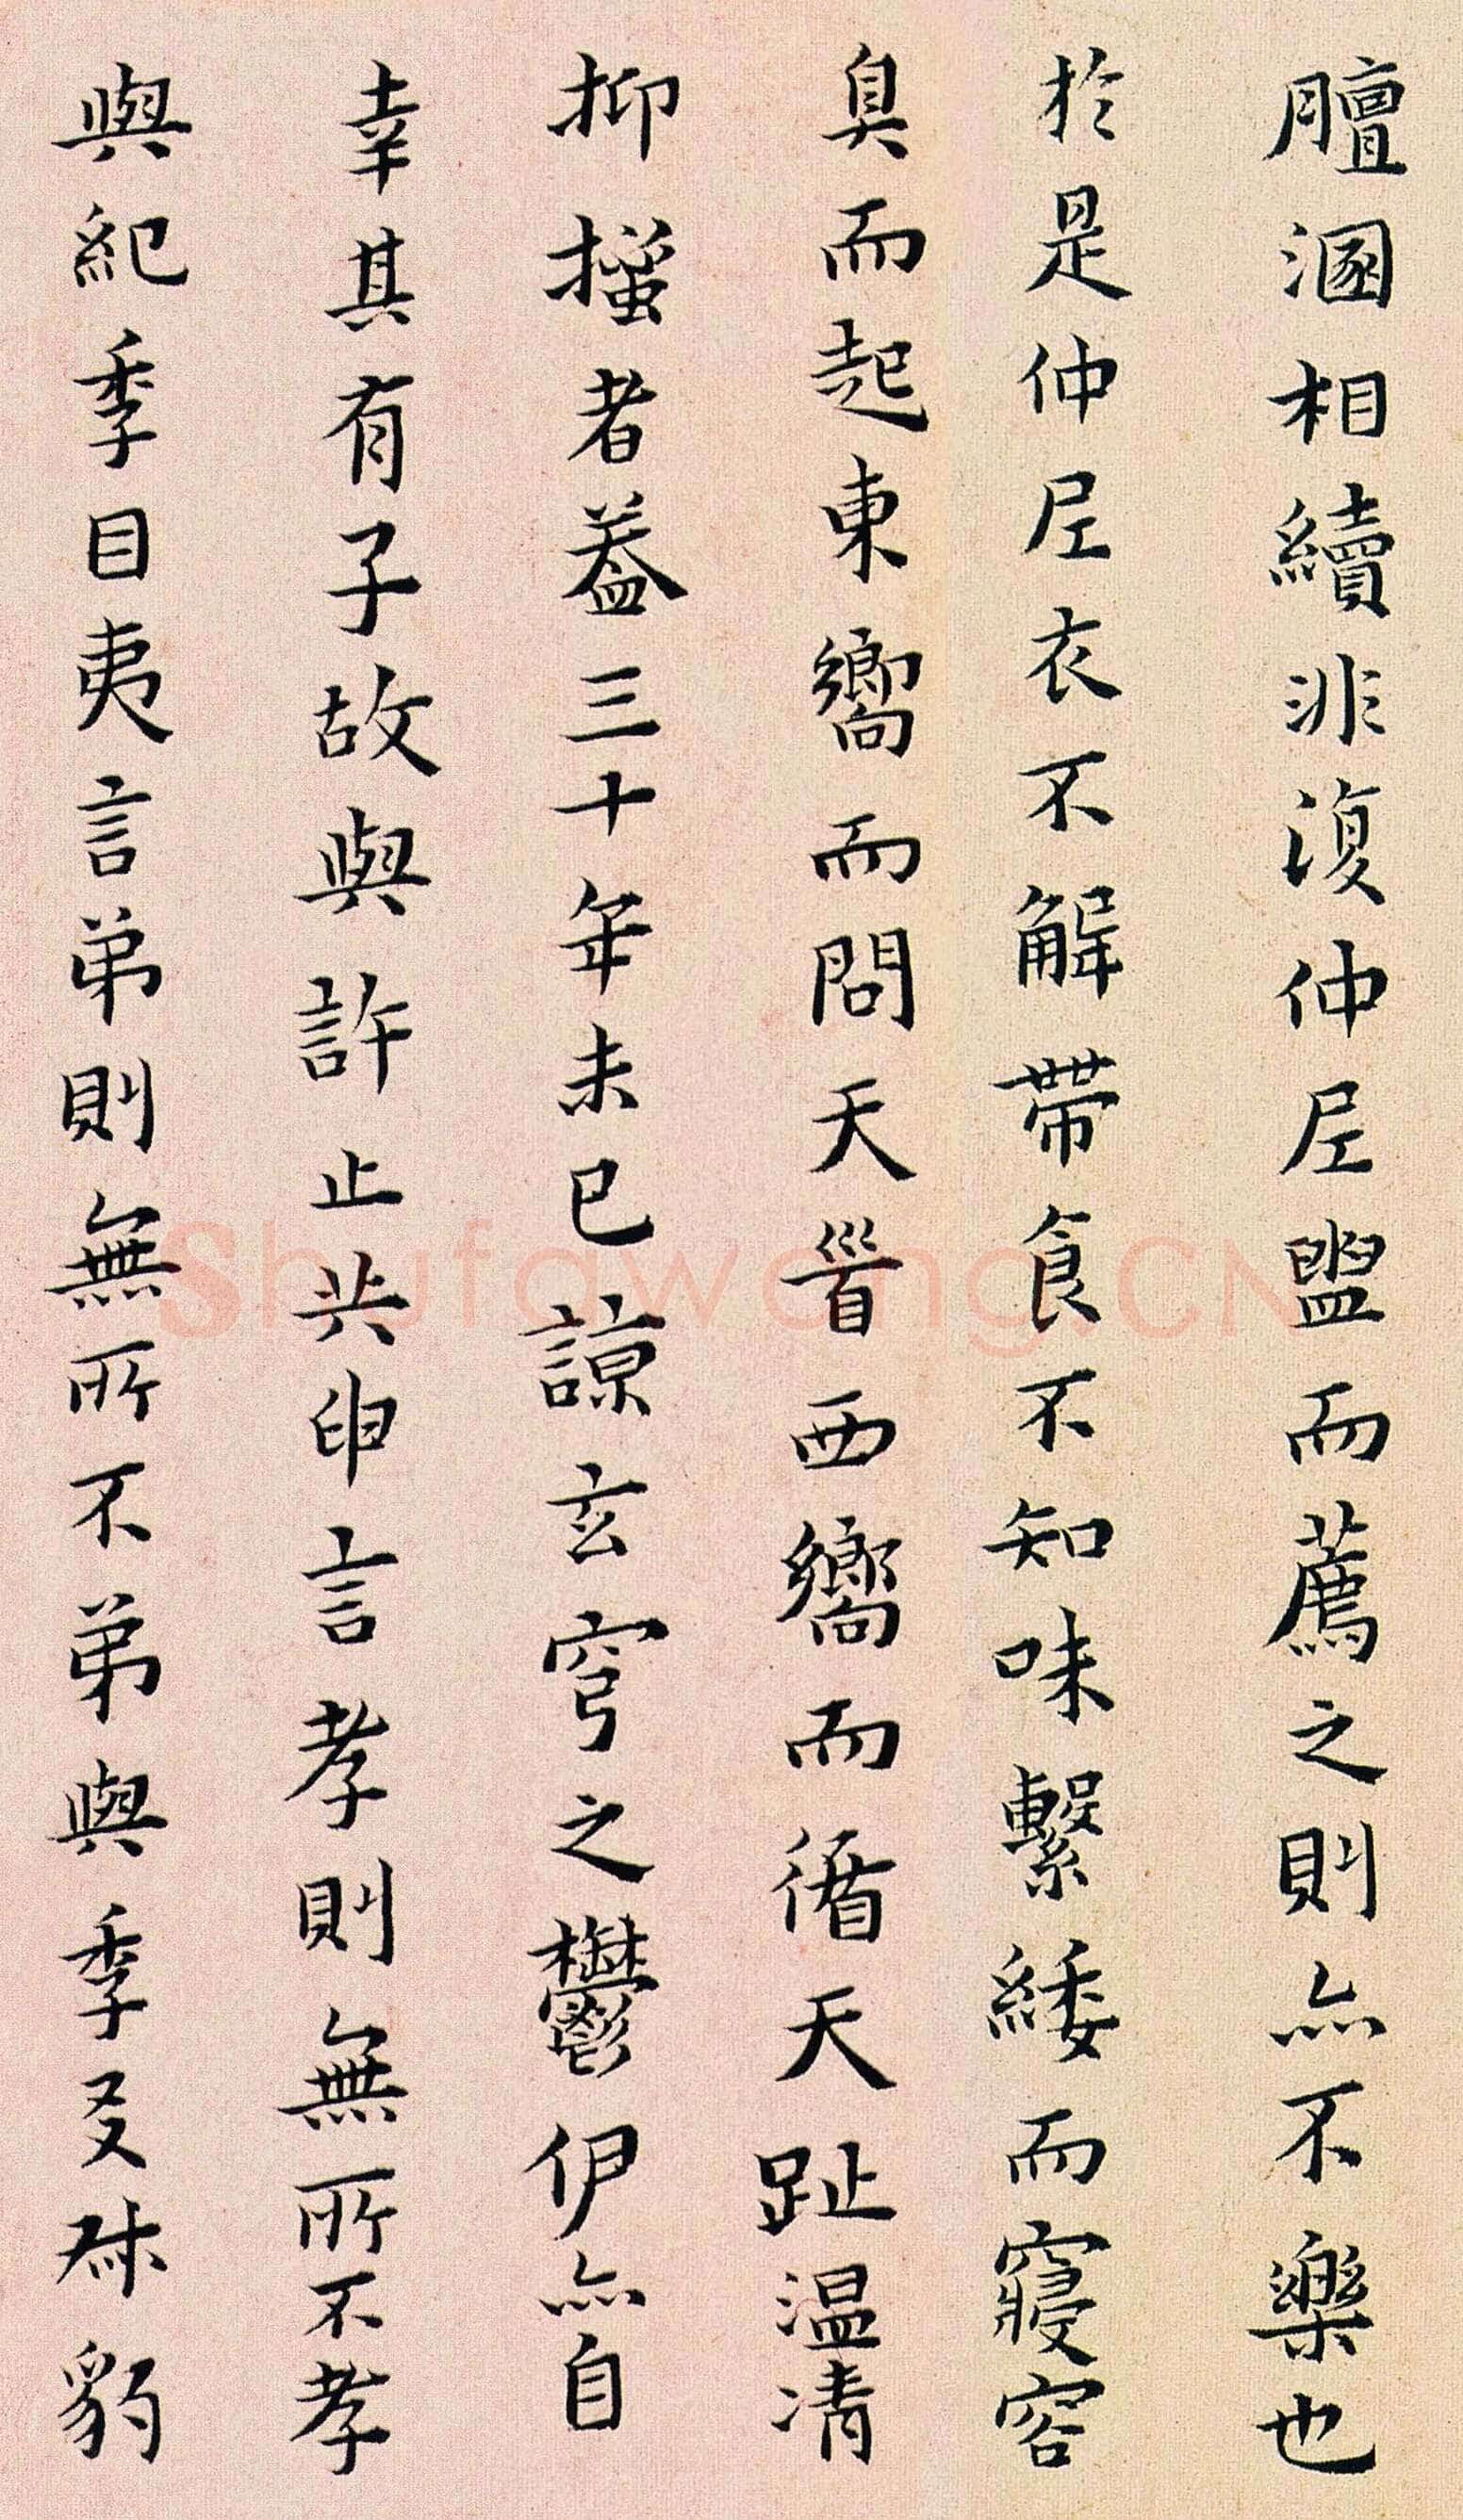 膻溷相續非復仲尼盥而薦之則亦不樂也
於是仲尼衣不解帶食不知味繫緌而寢容
臭而起東嚮而問天晉西嚮而循天趾温凊
抑搔者蓋三十年未已諒玄穹之鬱伊亦自
幸其有子故與許止共申言孝則無所不孝
與紀季目夷言弟則無所不弟與季友叔豹
Shufawang.CN